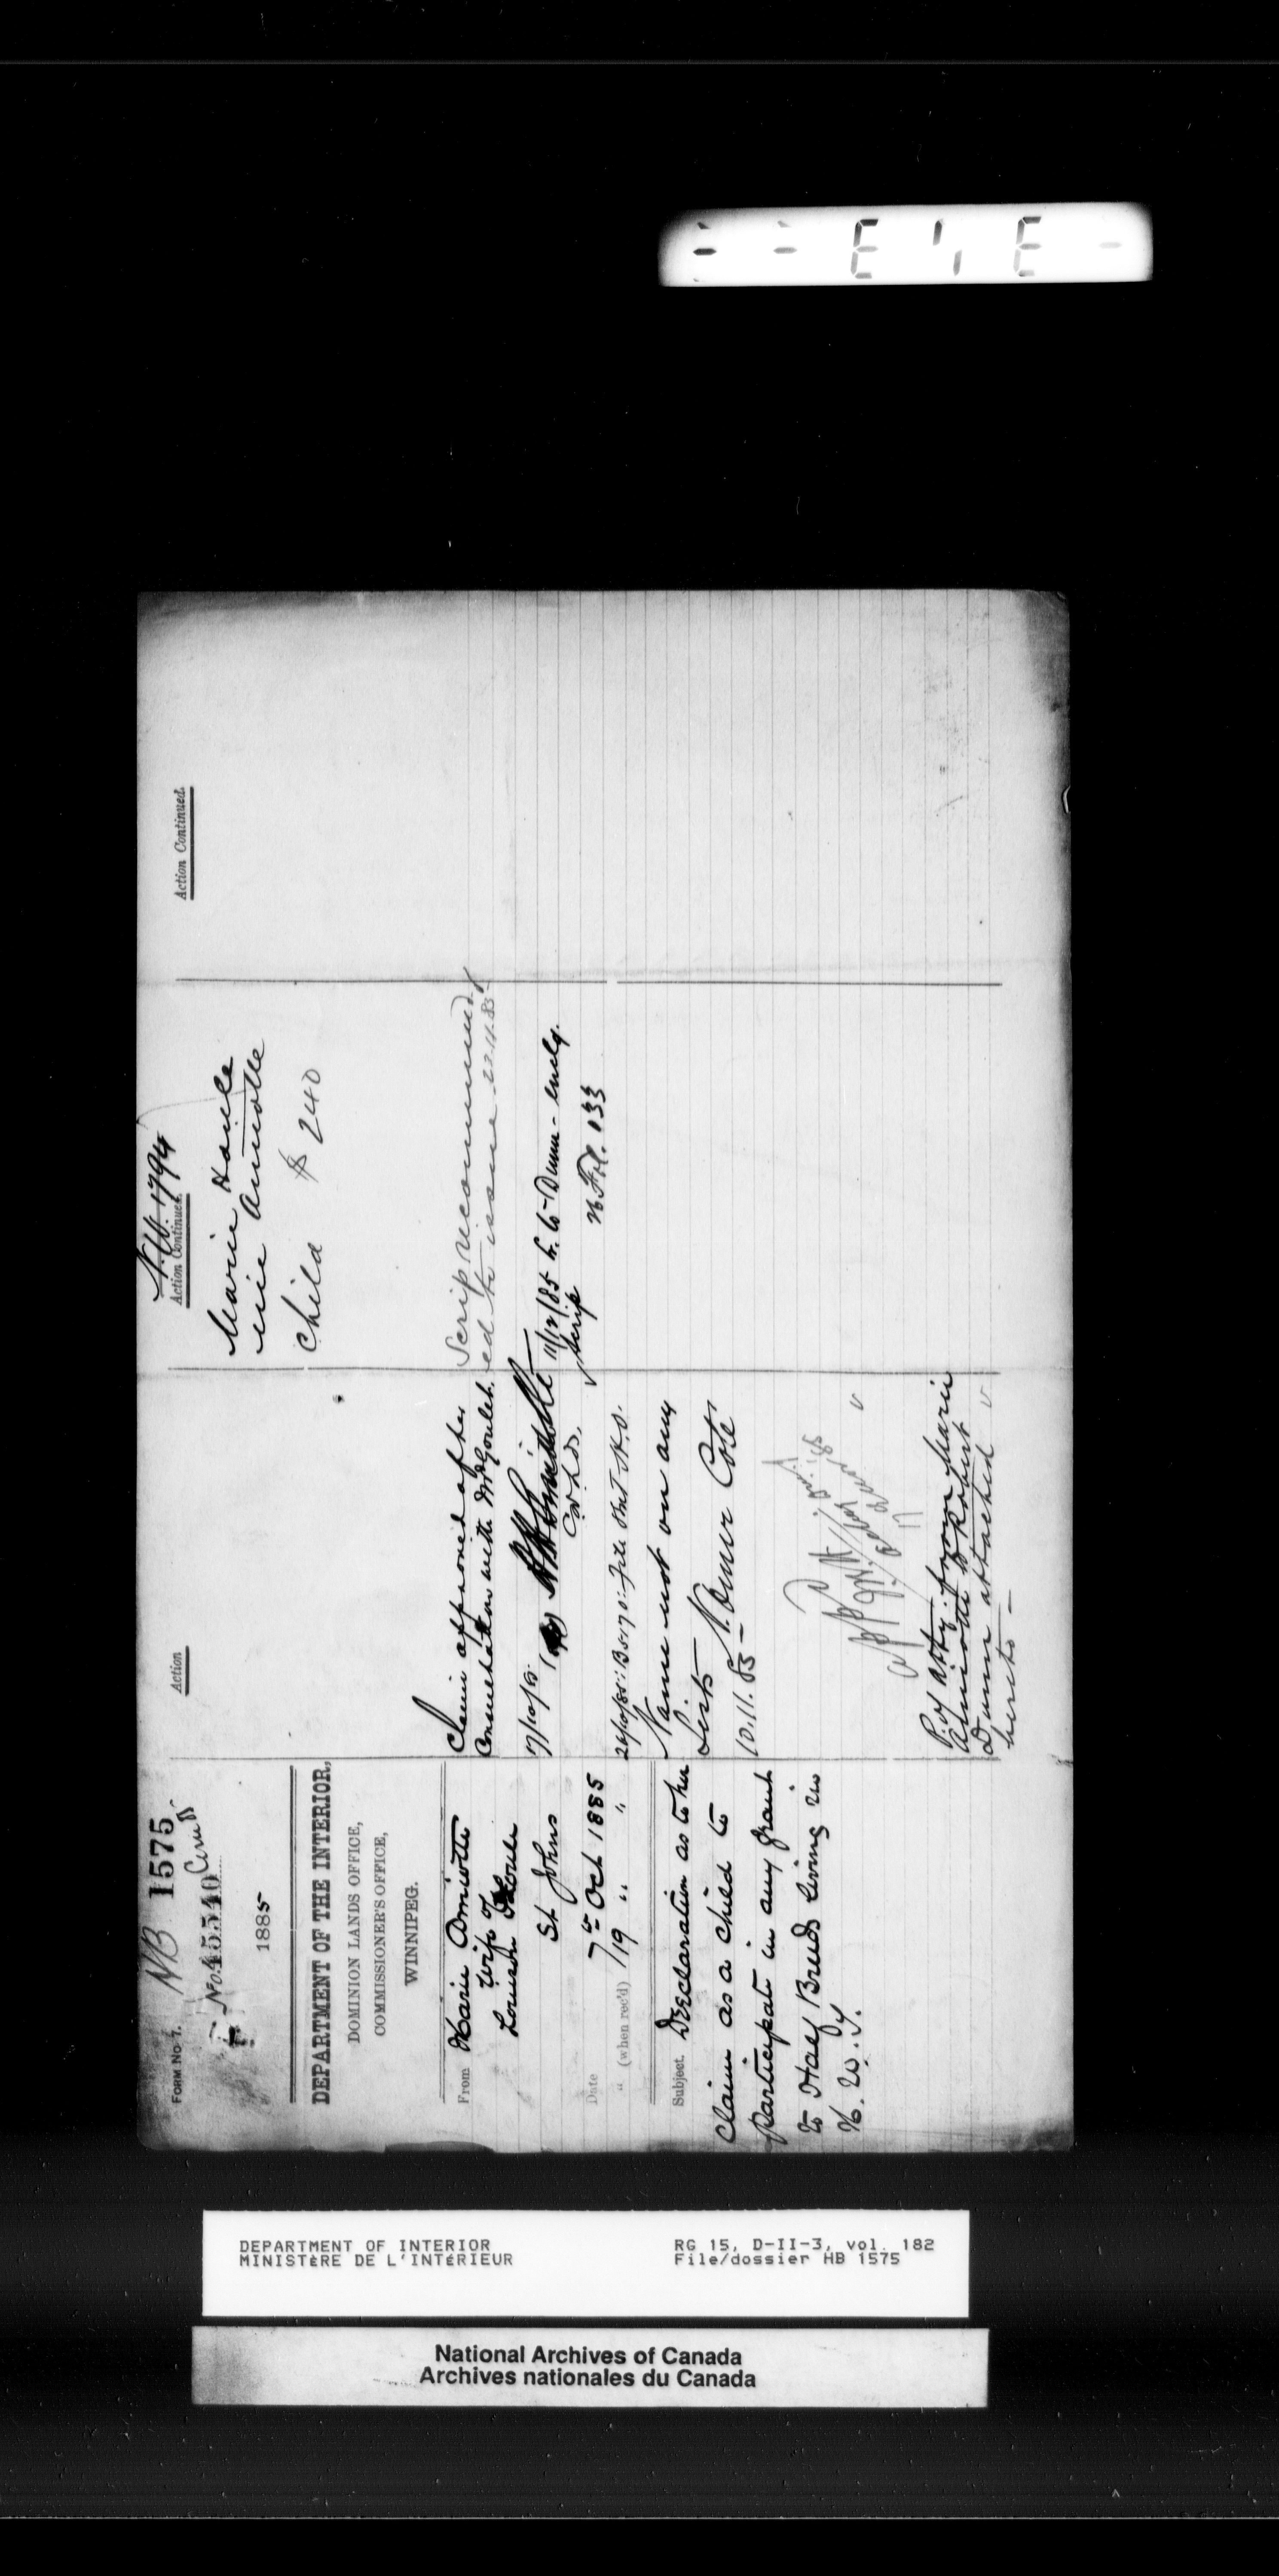 FORM No 1.
HB 1575
No. 45540
1885
DEPARTMENT OF THE INTERIOR,
DOMINION LANDS OFFICE,
COMMISSIONER'S OFFICE,
WINNIPEG.
From Marie Amiotte
wife of
Louison Houle
St Johns
Date 7th Oct 1885
" (when rec'd) 19 " "
Subject. Declaration as to her
Claim as a child to
participate in any grant
to Half Breeds living in
N. W. T.
Action
Claim approved after
Consultation with Mr Goulet.
17/10/85
26/10/85:
Name not on any
Lists N. Omer Coté
10.11.85 -
P. of Atty. from Marie
Amiotte to Robert
Dunn attached
hereto -
N.W. 1794
Action Continued.
Marie Houle
née Amiotte
Child $ 240
Scrip recommend-
ed to issue 22.11.85
11/12/85 to Dunn - enclg.
scrip
Fol. 133
Action Continued.
DEPARTMENT OF INTERIOR
MINISTÈRE DE L'INTÉRIEUR
RG 15, D-II-3, vol. 182
File/dossier HB 1575
National Archives of Canada
Archives nationales du Canada